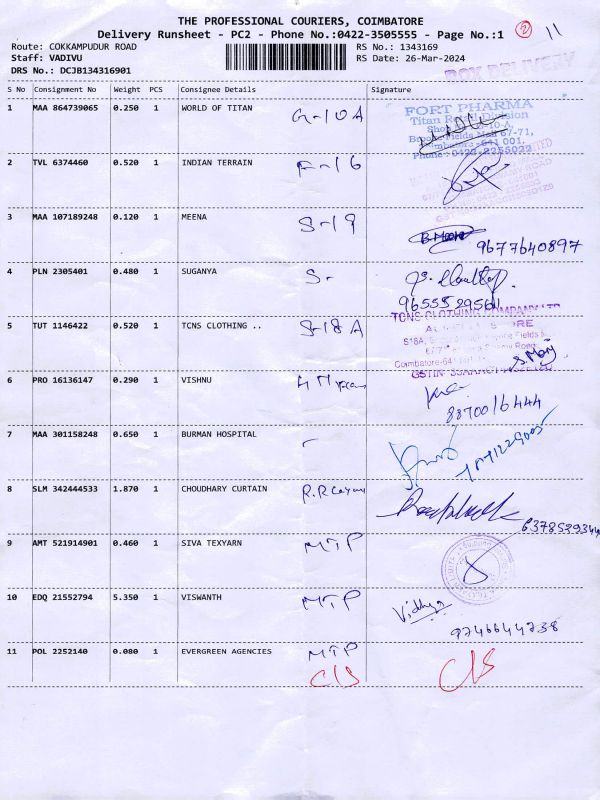 THE PROFESSIONAL COURIERS, COIMBATORE
Delivery Runsheet - PC2 - Phone No.:0422-3505555 - Page No.:1 2 11
Route: COKKAMPUDUR ROAD RS No.: 1343169
Staff: VADIVU RS Date: 26-Mar-2024
DRS No.: DCJB134316901
BOX DELIVERY
S No Consignment No Weight PCS Consignee Details Signature
1 MAA 864739065 0.250 1 WORLD OF TITAN G-10A
FORT PHARMA
Titan Division
641 001.
2 TVL 6374460 0.520 1 INDIAN TERRAIN F-16
3 MAA 107189248 0.120 1 MEENA S-19
9677640897
4 PLN 2305401 0.480 1 SUGANYA S-
TCNS CLOTHING COMPANY LTD
5 TUT 1146422 0.520 1 TCNS CLOTHING .. S-18A
Coimbatore-64
GSTIN
6 PRO 16136147 0.290 1 VISHNU
8870016444
7 MAA 301158248 0.650 1 BURMAN HOSPITAL -
8 SLM 342444533 1.870 1 CHOUDHARY CURTAIN
9 AMT 521914901 0.460 1 SIVA TEXYARN MTP
10 EDQ 21552794 5.350 1 VISWANTH MTP Vidhya
9746644738
11 POL 2252140 0.080 1 EVERGREEN AGENCIES MTP
C/S C/S